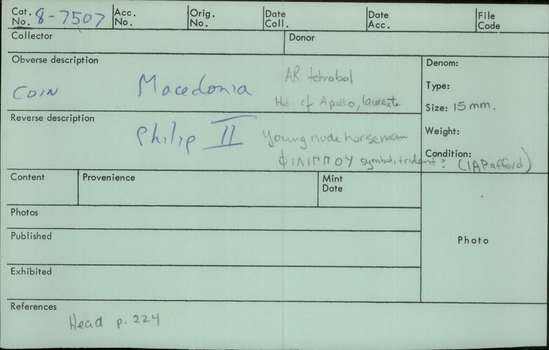 Cat. No. 8-7507 Acc. No. Orig. No. Date Coll. Date Acc. File Code
Collector Donor
Obverse description Denom:
COIN Macedonia AR tetrobol Type:
Hd. of Apollo, laureate Size: 15 mm.
Reverse description Weight:
Philip II Young nude horseman
ΦΙΛΙΠΠΟΥ symbol, trident? Condition:
Content Provenience Mint Date
Photos
Published Photo
Exhibited
References
Head p. 224